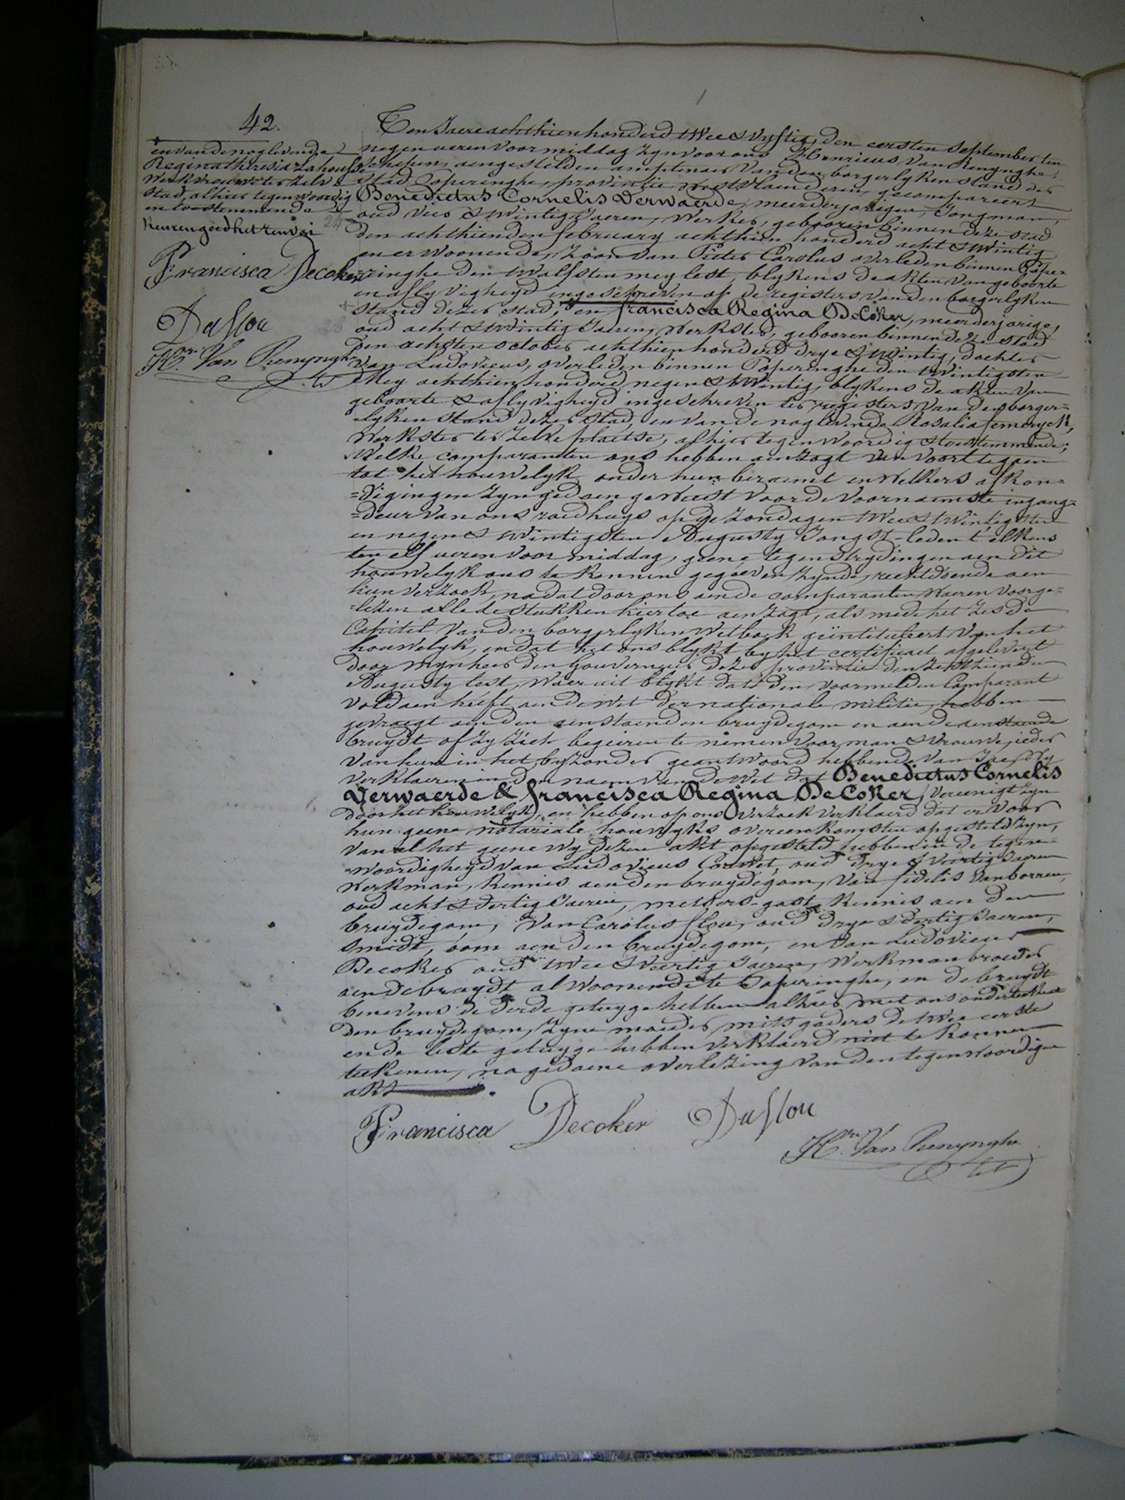 42.
en van de noglevende
Regina theresia Lahouste
werkvrouw ter zelve
stad, alhier tegenwoordig
en toestemmende
keuren goed het renvoi
Francisca Decoker
Du flou
Hri Van Renynghe
Ten Jaere achthien honderd twee & vyftig, den eersten September ten
negen ueren voormiddag zyn voor ons Henricus Van Renynghe,
schepen, aengestelden amptenaer van den borgerlyken stand der
stad Poperinghe, provintie westvlaenderen gecompareert
Benedictus Cornelis Verwaerde, meerderjarigen, Jongman,
oud vier & twintig Jaeren, werker, gebooren binnen deze stad
den achthienden february achthien honderd acht & twintig
en er woonende, zoon van Pieter Carolus overleden binnen Pope-
ringhe den twalfsten mey lest, blykens de akten van geboorte
en aflyvigheyd ingeschreven op de registers van den borgerlyken
stand dezer stad, en francisca Regina DeCoker, meerderjarige,
oud acht & twintig Jaeren, werkster, gebooren binnen deze stad
den achsten october achthien honderd drye & twintig, dochter
van Ludovicus, overleden binnen Poperinghe den twintigsten
Mey achthien honderd negen & twintig, blykens de akten van
geboorte & aflyvigheyd ingeschreven ter registers van den borger-
lyken stand dezer stad, en van de noglevende Rosalia
werkster ter zelve plaetse, alhier tegenwoordig & toestemmende;
Welke comparanten ons hebben aenzogt van voorttegaen
tot het houwelyk onder hun beraemt en welkers afkon-
=digingen zyn gedaen geweest voor de voornaemste ingang-
=deur van ons raedhuys op de zondagen twee & twintigsten
en negen & twintigsten Augusty Jongst-leden t'elkens
ten elf ueren voor middag, geene tegenstrydingen aen dit
houwelyk ons te kennen gegeven zynde, rechtdoende aen
hun verzoek, na dat door ons aen de comparanten waeren voorge-
=lezen alle de stukken hier toe aenzogt, als mede het zesde
Capitel van den borgerlyken Wetboek geintituleert van het
houwelyk, en dat het ons blykt by het certificaet afgelevert
door mynheer den Gouverneur dezer provintie den zesthienden
Augusty lest, waer uit blykt dat den voormelden Comparant
voldaen heeft aen de wet der nationale militie, hebben
gevraegt aen den aenstaenden bruydegom en aen de aenstaende
bruydt of zy zich begeeren te nemen voor man & vrouwe, jeder
van hun in het byzonder geantwoord hebbende van Ja, zoo
verklaeren in den naem van de wet dat Benedictus Cornelis
Verwaerde & francisca Regina DeCoker, vereenigt zyn
door het houwelyk, en hebben op ons verzoek verklaerd dat er voor
hun geene notariale houwelyks overeenkomsten opgesteld zyn,
van al het geene wy dezen akt opgesteld hebben in de tegen-
=woordigheyd van Ludovicus Couvet, oud drye & veertig Jaeren
werkman, kennis aen den bruydegom, van fidelis Van borren,
oud acht & dertig Jaeren, metsers gast, kennis aen den
bruydegom, van Carolus flou, oud drye & dertig Jaeren,
smidt, oom aen den bruydegom, en van Ludovicus
Decoker oud twee & veertig Jaeren, werkman broeder
aen de bruydt al woonende te Poperinghe, en de bruydt
benevens de derde getuyge hebben alhier met ons onderteekent
den bruydegom, zyne moeder mitsgaders de twee eerste
en de leste getuyge hebben verklaerd niet te konnen
teekenen, na gedaene overlezing van den tegenwoordigen
akt
Francisca Decoker Du flou
Hri Van Renynghe